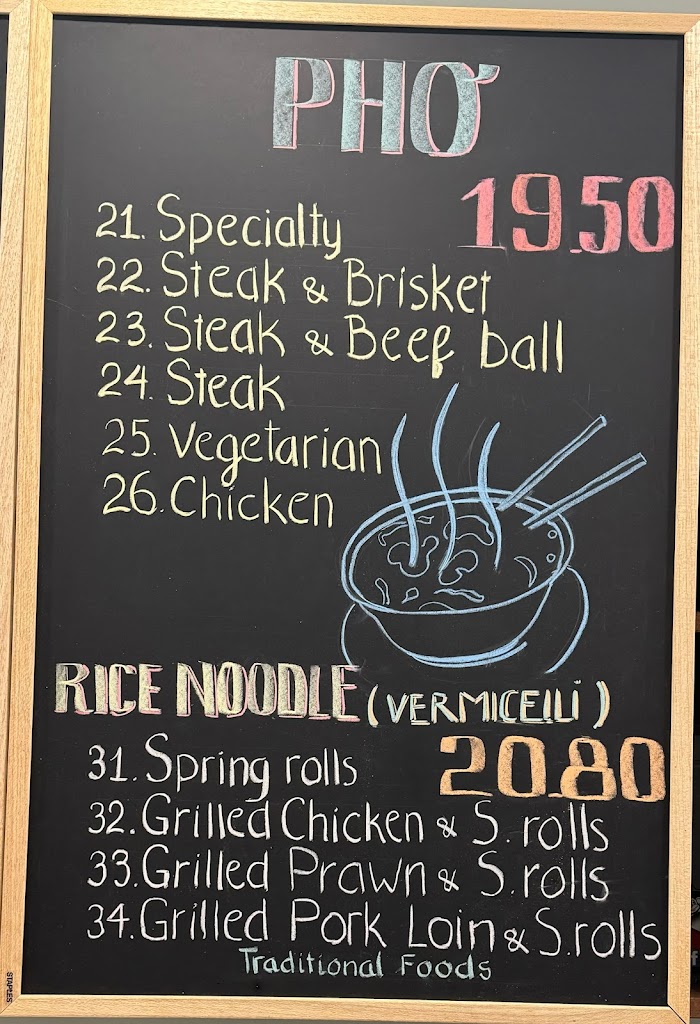 PHỞ
19.50
21. Specialty
22. Steak & Brisket
23. Steak & Beef ball
24. Steak
25. Vegetarian
26. Chicken
RICE NOODLE (VERMICELLI)
20.80
31. Spring rolls
32. Grilled Chicken & S. rolls
33. Grilled Prawn & S. rolls
34. Grilled Pork Loin & S. rolls
Traditional Foods
STAPLES